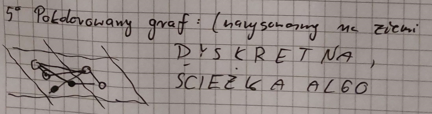 5° Pokolorowany graf: (narysowany na ziemi
DYSKRETNA,
ŚCIEŻKA ALGO